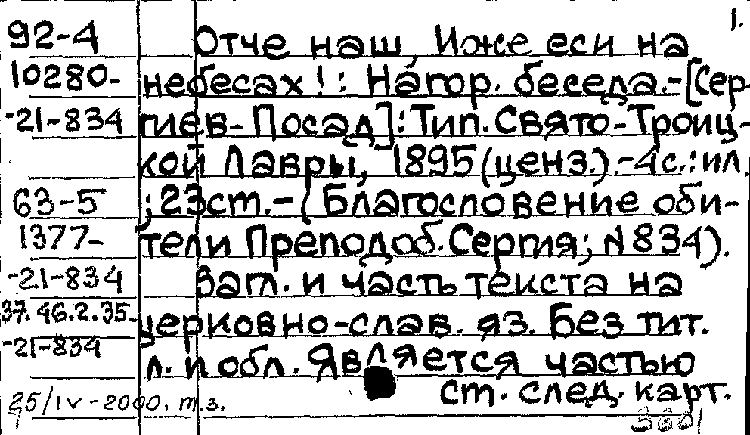 1.
92-4 Отче наш, Иже еси на
10280- небесах!: Нагор. беседа.-[Сер-
-21-834 гиев-Посад]: Тип. Свято-Троиц-
кой Лавры, 1895 (ценз.).-4с.: ил.
63-5 ; 23 ст.-(Благословение оби-
1377- тели Преподоб. Сергия; №834).
-21-834 Загл. и часть текста на
37.46.2.35- церковно-слав. яз. Без тит.
-21-834 л. и обл. Является частью
ст. след. карт.
25/IV-2000. т.з.